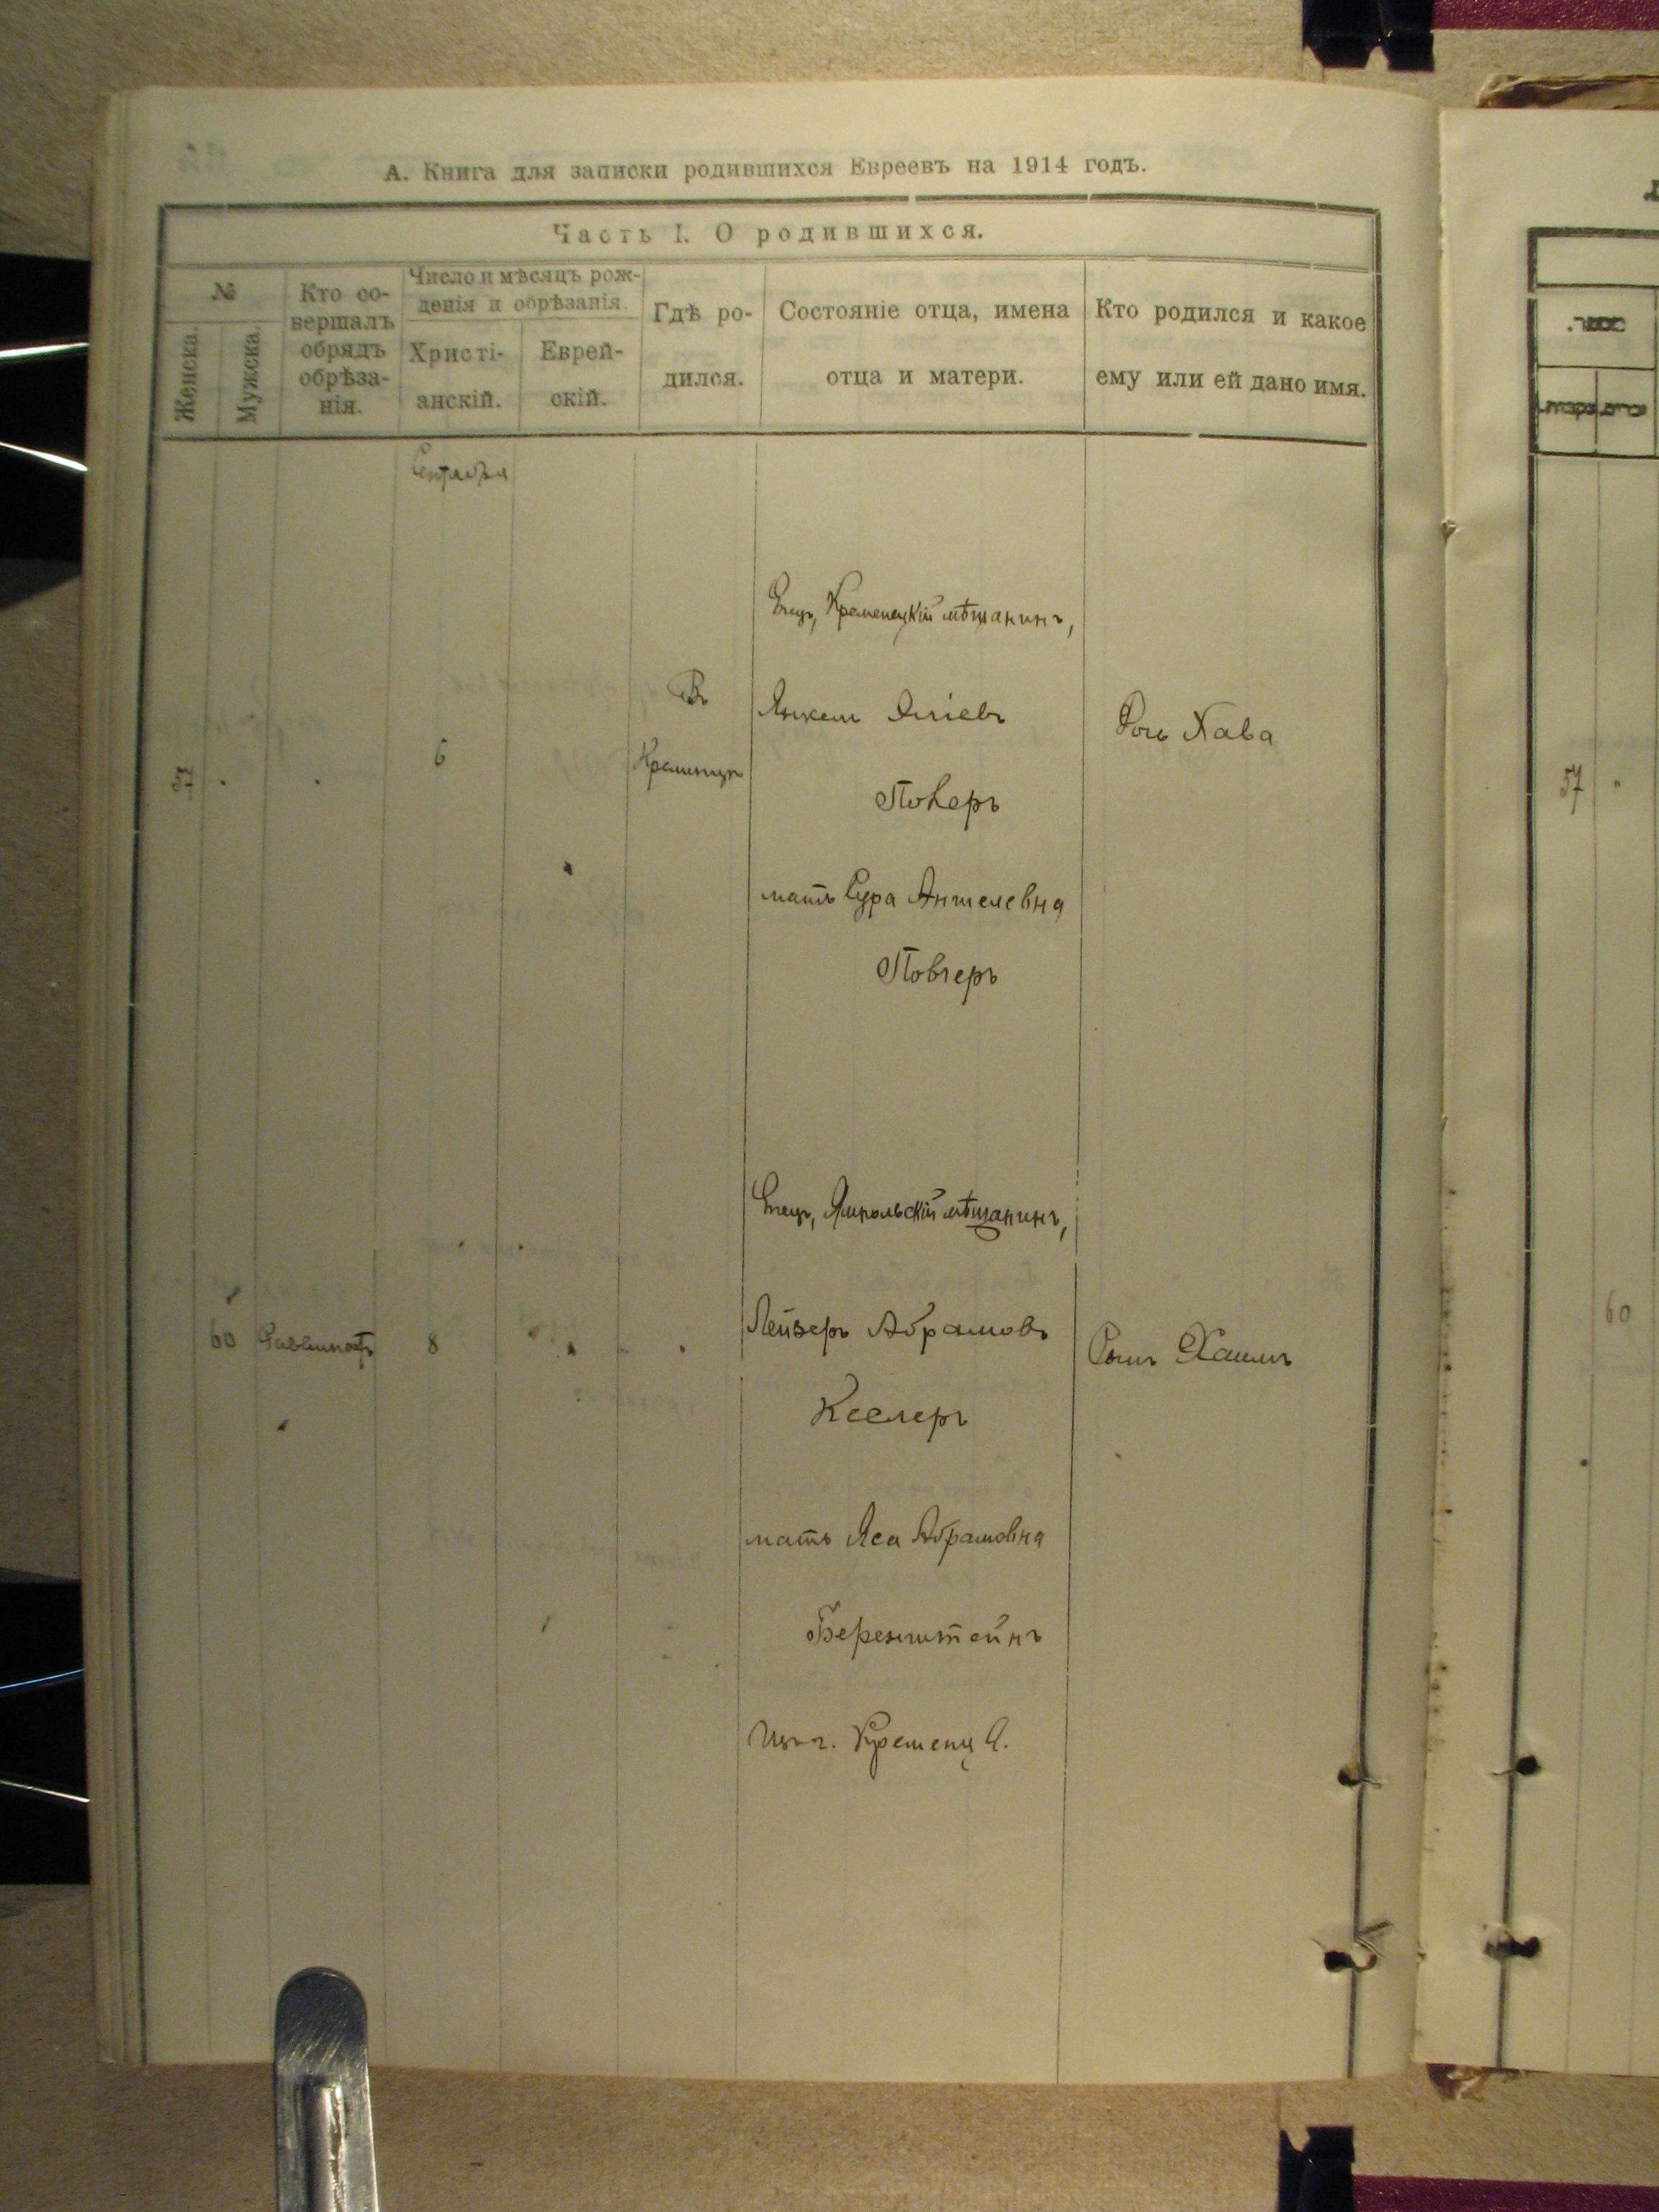 А. Книга для записки родившихся Евреевъ на 1914 годъ.
Часть I. О родившихся.
№
Женска.
Мужска.
Кто со-
вершалъ
обрядъ
обрѣза-
нія.
Число и мѣсяцъ рож-
денія и обрѣзанія.
Христі-
анскій.
Еврей-
скій.
Гдѣ ро-
дился.
Состояніе отца, имена
отца и матери.
Кто родился и какое
ему или ей дано имя.
Сентября
57
6
Въ
Кременцѣ
Отецъ, Кременецкій мѣщанинъ,
Янкель
Мать Сура Аншелевна
Повчеръ
Дочь Хава
60
8
Отецъ, Ямпольскій мѣщанинъ,
Лейзеръ Абрамовъ
Кеслеръ
мать Абрамовна
Беренштейнъ
Сынъ Хаимъ
57
60